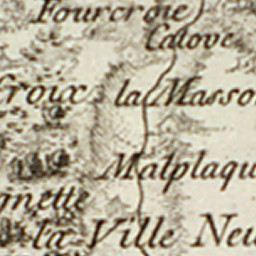 Fourcroie
Catove
Croix la Masso
Malplaqu
gnette
la Ville Neu